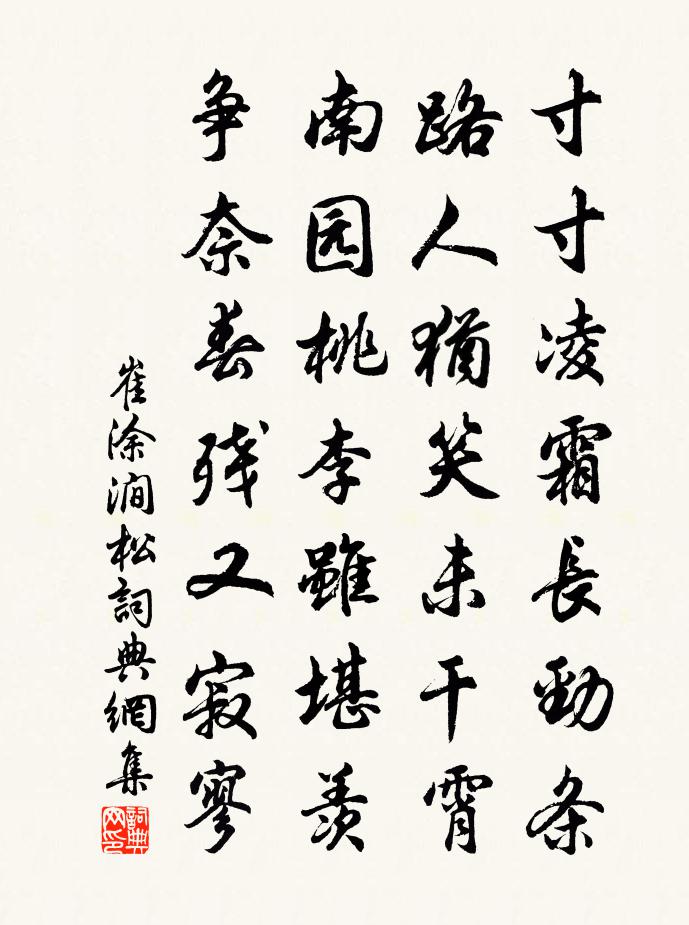 寸寸凌霜長勁条
路人犹笑未干霄
南园桃李雖堪羨
争奈春残又寂寥
崔涂澗松詞典網集
詞典网印